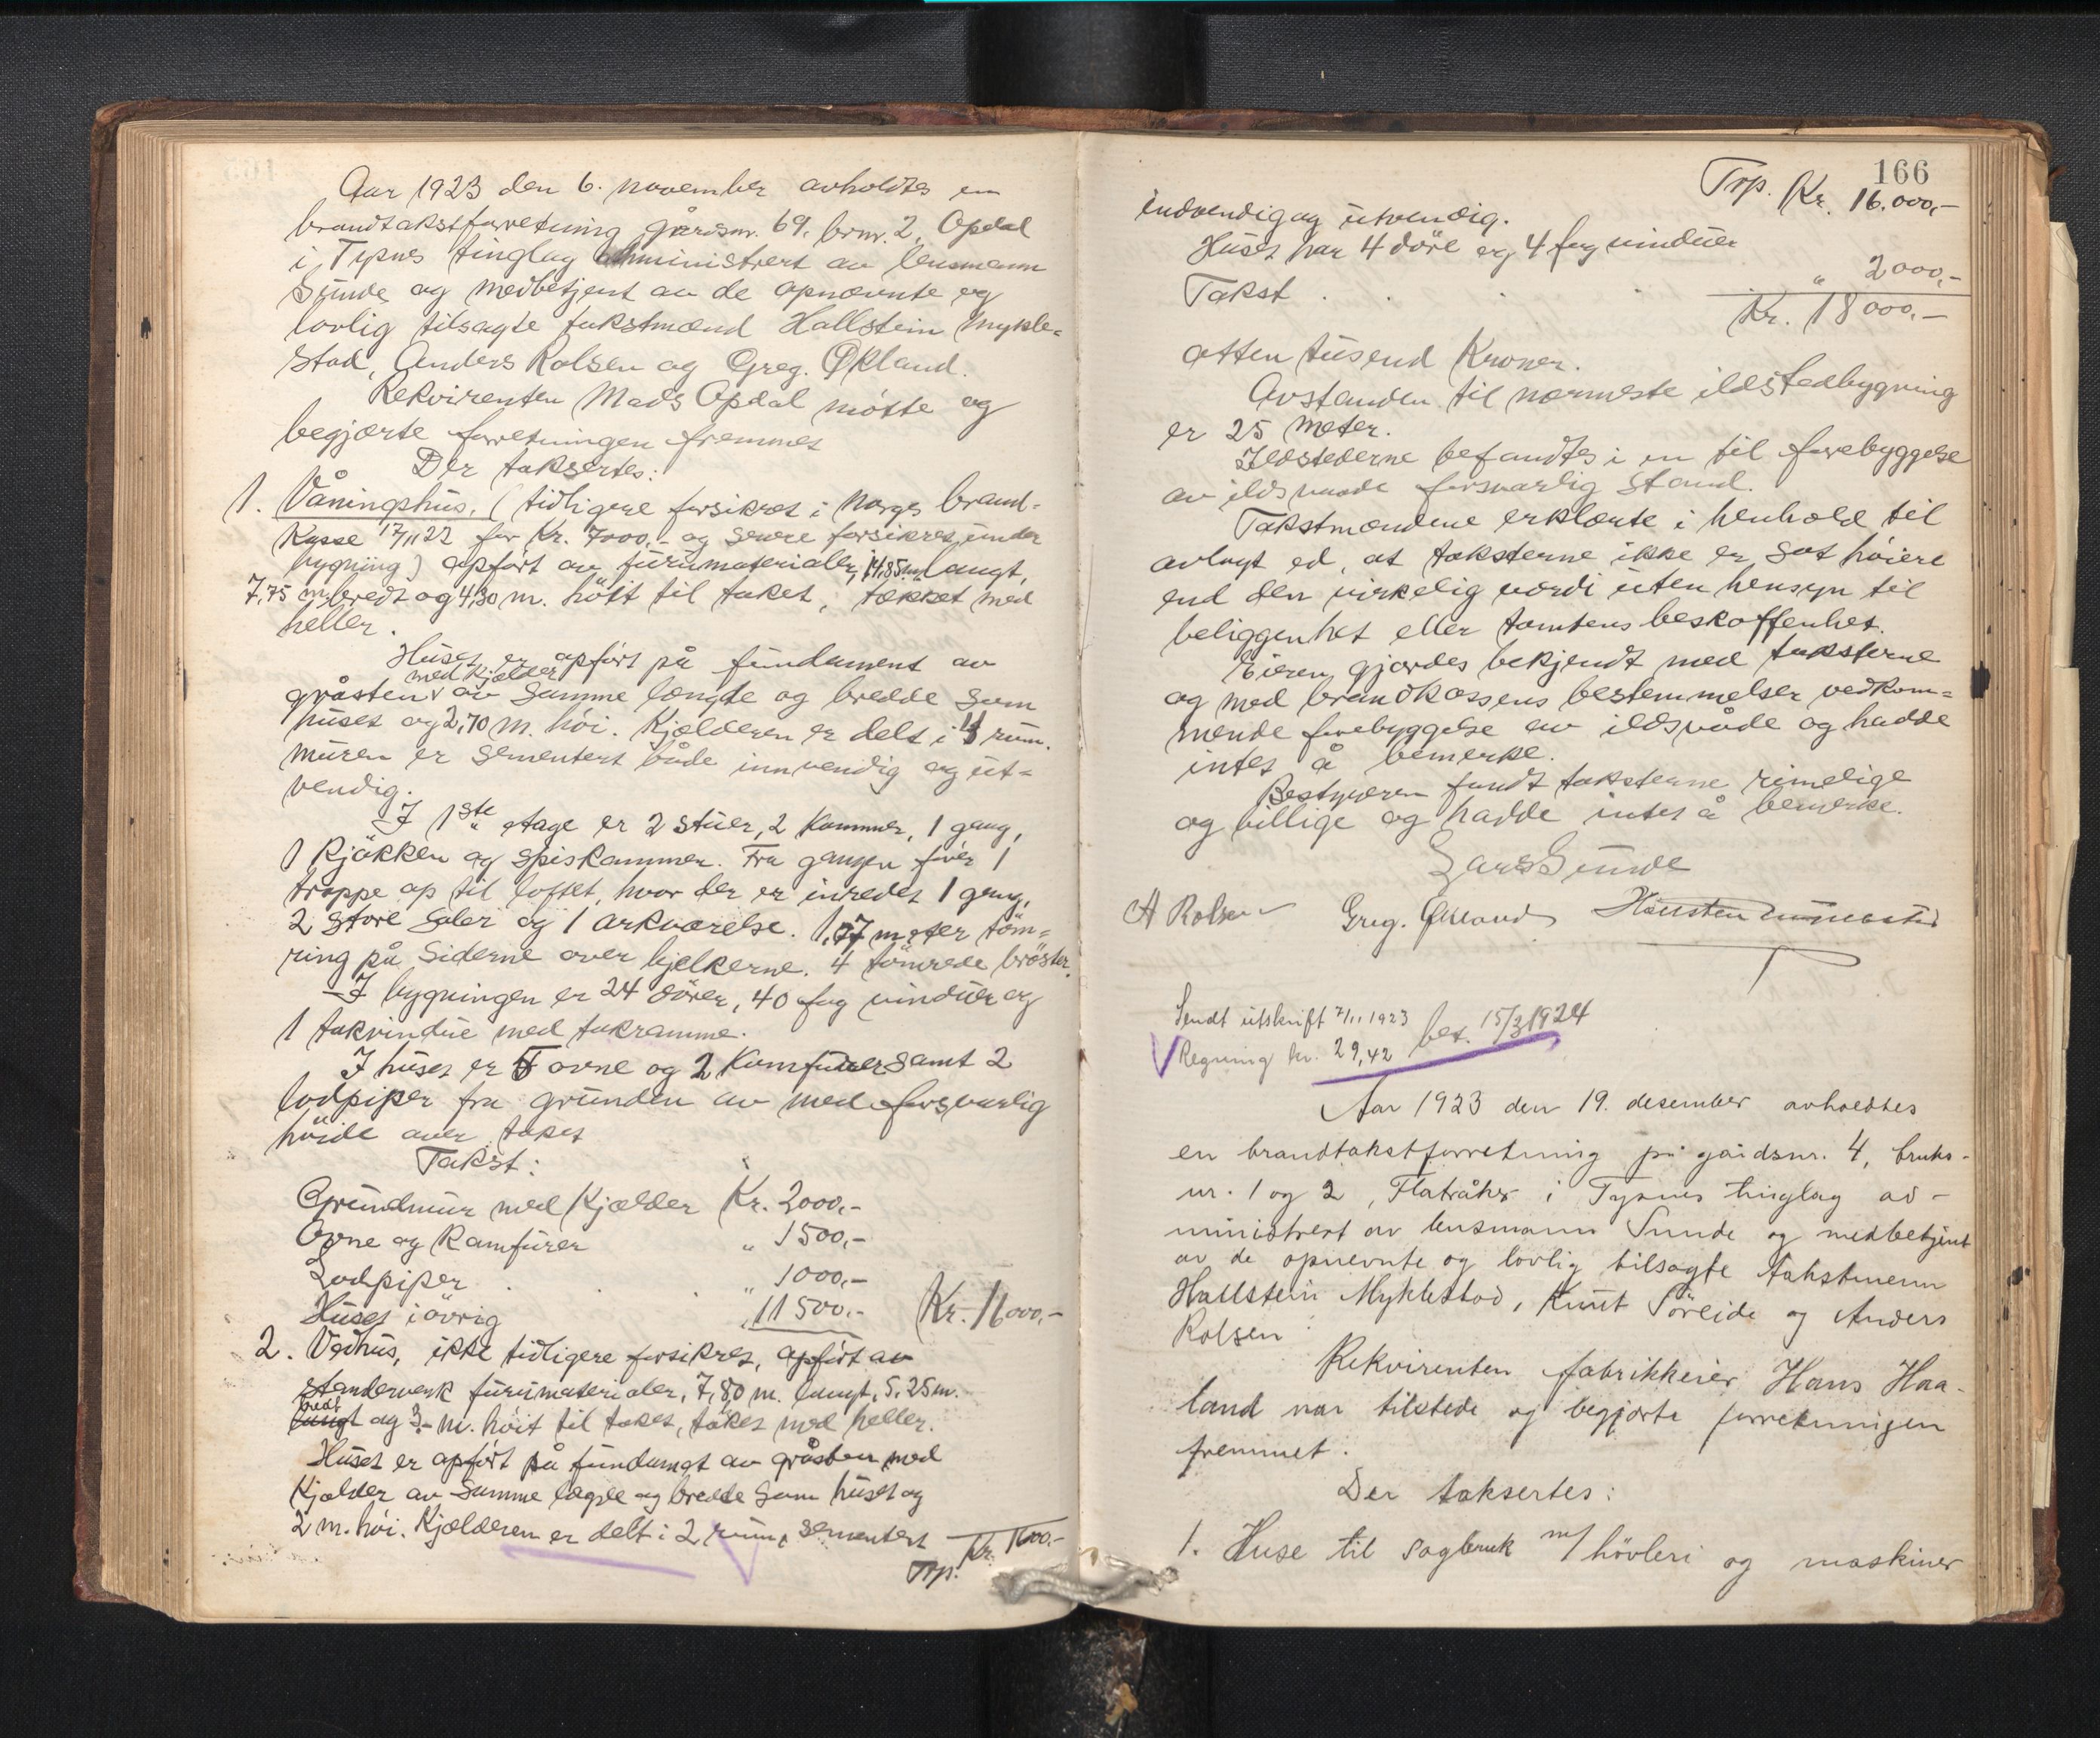 Aar 1923 den 6. november avholdtes en
brandtakstforretning gårdsnr. 69, brnr. 2, Opdal
i Tysnes tinglag administrert av lensmann
Sunde og medbetjent av de opnævnte og
lovlig tilsagte takstmænd Hallstein Mykle=
stad, Anders Rolsen og Greg. Økland.
Rekvirenten Mads Opdal møtte og
begjærte forretningen fremmet
Der taksertes:
1. Våningshus, (tidligere forsikret i Norges brand-
kasse 17/11 22 for Kr. 7000,- og senere forsikret under
bygning) opført av furumaterialer, 14,85 m. langt,
7,75 m. bredt og 4,30 m. höit til taket, tækket med
heller.
Huset er opført på fundament av
gråsten med kjælder av samme længde og bredde som
huset og 2,70 m. höi. Kjælderen er delt i rum.
Muren er sementert både innvendig og ut=
vendig.
I 1ste etage er 2 stuer, 2 kammer, 1 gang,
1 kjökken og spiskammer. Fra gangen förer 1
trappe op til loftet, hvor der er inredet 1 gang,
2 store saler og 1 arkværelse. 1,77 meter töm=
ring på siderne over bjelkerne. 4 tömrede bröster.
I bygningen er 24 dörer, 40 fag vinduer og
1 takvindue med takramme.
I huset er 5 ovne og 2 komfurer samt 2
lodpiper fra grunden av med forsvarlig
höide over taket
Takst:
Grundmur med kjælder Kr. 2000,-
Ovne og Kamfurer " 1500,-
Lodpiper . . " 1000,-
Huset i övrig " 11500,- Kr. 16000,-
2. Vedhus, ikke tidligere forsikret, opført av
stenderverk furumaterialer, 7,80 m. langt, 5,25 m.
bredt og 3,- m. höit til taket, täket med heller.
Huset er opført på fundamet av gråsten med
Kjælder av samme længde og bredde som huset og
2 m. höi. Kjælderen er delt i 2 rum, sementert
Trp. Kr. 1600,-
166
Trp. Kr. 16.000,-
indvendig og utvendig.
Huset har 4 döre og 4 fag vinduer
Takst . . . . " 2000,-
Kr. 18000,-
atten tusend Kroner.
Avstanden til nærmeste ildstedbygning
er 25 meter.
Ildstederne befandtes i en til forebyggelse
av ildsvaade forsvarlig stand.
Takstmændene erklærte i henhold til
avlagt ed, at taksterne ikke er sat höiere
end den virkelig værdi uten hensyn til
beliggenhet eller tomtens beskaffenhet.
Eieren gjordes bekjendt med taksterne
og med brandkassens bestemmelser vedkom=
mende forebyggelse av ildsvåde og hadde
intet å bemerke.
Bestyreren fandt taksterne rimelige
og billige og hadde intet å bemerke.
Lars Sunde
A Rolsen Greg. Økland Hallstein Myklestad
Sendt utskrift 7/11 1923
Regning kr. 29,42 bet. 15/3 1924
Aar 1923 den 19. desember avholdtes
en brandtakstforretning på gårdsnr. 4, bruks-
nr. 1 og 2, Flatråker i Tysnes tinglag ad-
ministrert av lensmann Sunde og medbetjent
av de opnevnte og lovlig tilsagte takstmenn
Hallstein Myklestad, Knut Söreide og Anders
Rolsen
Rekvirenten fabrikkeier Hans Haa-
land var tilstede og begjærte forretningen
fremmet.
Der taksertes:
1. Huse til sagbruk m/ hövleri og maskiner